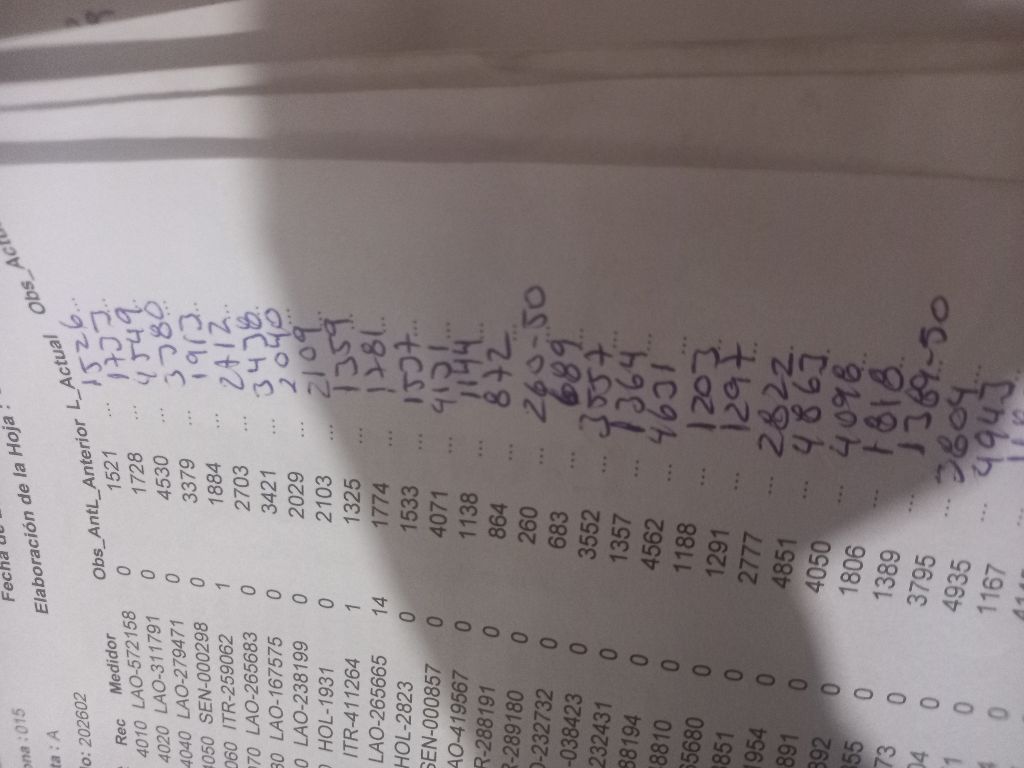 Fecha de
Elaboración de la Hoja :
ona : 015
ta : A
lo: 202602
Rec Medidor Obs_AntL_Anterior L_Actual Obs_Actu
4010 LAO-572158 0 1521 ... 1526...
4020 LAO-311791 0 1728 ... 1733...
4040 LAO-279471 0 4530 ... 4549...
4050 SEN-000298 0 3379 ... 3380...
060 ITR-259062 1 1884 ... 1913...
70 LAO-265683 0 2703 ... 2712...
80 LAO-167575 0 3421 ... 3438...
0 LAO-238199 0 2029 ... 2040...
HOL-1931 0 2103 ... 2109...
ITR-411264 1 1325 ... 1359...
LAO-265665 14 1774 ... 1781...
HOL-2823 0 1533 ... 1537...
SEN-000857 0 4071 ... 4131...
AO-419567 0 1138 ... 1144...
R-288191 0 864 ... 872...
R-289180 0 260 ... 260-50
-232732 0 683 ... 689...
-038423 0 3552 ... 3557...
232431 0 1357 ... 1364...
88194 0 4562 ... 4631...
8810 0 1188 ... 1203...
65680 0 1291 ... 1297...
851 0 2777 ... 2822...
1954 0 4851 ... 4863...
891 0 4050 ... 4098...
892 0 1806 ... 1818...
55 0 1389 ... 1389-50
73 0 3795 ... 3804...
04 0 4935 ... 4943...
1 0 1167 ...